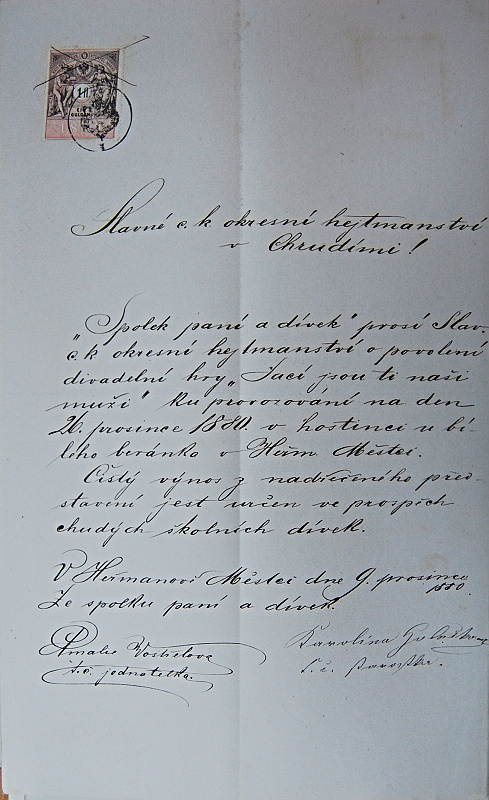 1 fl.
EIN
GULDEN
Slavné c. k. okresní hejtmanství
v Chrudimi!
„Spolek paní a dívek" prosí Slav.
c. k. okresní hejtmanství o povolení
divadelní hry „Jací jsou ti naši
muži" ku provozování na den
26. prosince 1880. v hostinci u bí-
lého beránka v Heřm. Městci.
Čistý výnos z nadřečeného před-
stavení jest určen ve prospěch
chudých školních dívek.
V Heřmanově Městci dne 9. prosince
1880.
Ze spolku paní a dívek.
Amalie
t. č. jednatelka.
Karolina
t. č. starostka.